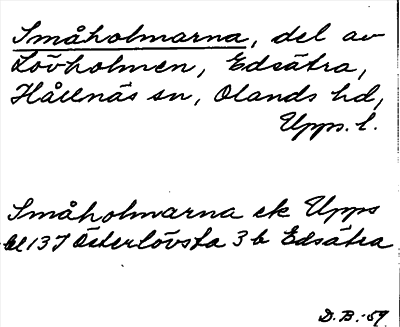 Småholmarna, del av
Lövholmen, Edsätra,
Hållnäs sn, Olands hd,
Upps. l.
Småholmarna ek Upps
bl 137 Österlövsta 3 b Edsätra
D.B.-59